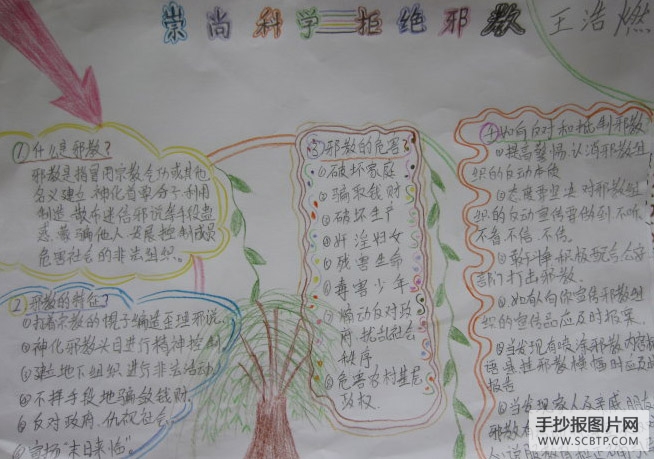 崇尚科学——拒绝邪教
王浩燃
①什么是邪教?
邪教是指冒用宗教、气功或其他
名义建立、神化首要分子利用
制造、散布迷信邪说等手段蛊
惑、蒙骗他人,发展、控制成员
危害社会的非法组织。
②邪教的特色?
①打着宗教的幌子编造歪理邪说.
②神化邪教头目进行精神控制
③建立地下组织进行非法活动
④不择手段地骗敛钱财.
⑤反对政府、仇视社会.
⑥宣扬“末日来临”。
③邪教的危害?
①破坏家庭
②骗取钱财
③破坏生产
④奸淫妇女
⑤残害生命
⑥毒害少年.
⑦煽动反对政
府,扰乱社会
秩序
⑧危害农村基层
政权.
④如何反对和抵制邪教
①提高警惕认清邪教组
织的反动本质
②态度 坚决对邪教组
织的反动宣传要做到不听、
不看不信、不传。
③敢于斗争积极配合公安
部门打击邪教.
④如有人向你宣传邪教组
织的宣传品应及时报案.
⑤当发现有喷涂邪教内容标
语悬挂邪教横幅时应及时
报告
⑥当发现家人及亲戚朋友
邪教
手抄报图片网
WWW.SCBTP.COM